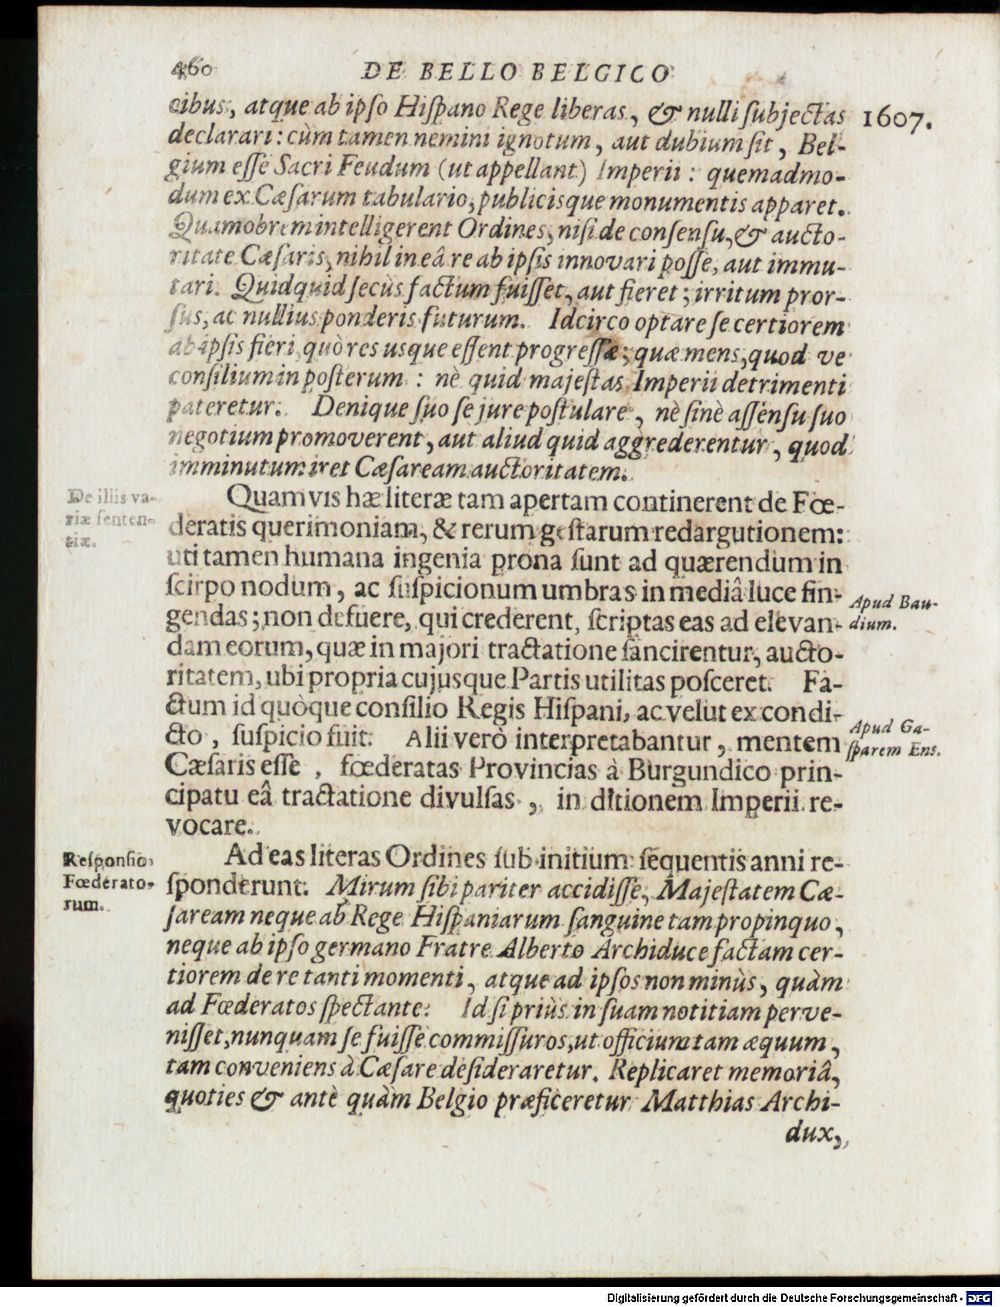 460 DE BELLO BELGICO
cibus, atque ab ipſo Hiſpano Rege liberas, & nulli ſubjectas 1607.
declarari: cùm tamen nemini ignotum, aut dubium ſit, Bel-
gium eſſe Sacri Feudum (ut appellant) Imperii: quemadmo-
dum ex Cæſarum tabulario, publicisque monumentis apparet.
Quamobrem intelligerent Ordines, niſi de conſenſu, & aucto-
ritate Cæſaris, nihil in eâ re ab ipſis innovari poſſe, aut immu-
tari. Quidquid ſecùs factum fuiſſet, aut fieret; irritum pror-
ſus, ac nullius ponderis futurum. Idcirco optare ſe certiorem
ab ipſis fieri, quò res usque eſſent progreſſæ; quæ mens, quod ve
conſilium in poſterum: nè quid majeſtas Imperii detrimenti
pateretur. Denique ſuo ſe jure poſtulare, nè ſinè aſſenſu ſuo
negotium promoverent, aut aliud quid aggrederentur, quod
imminutum iret Cæſaream auctoritatem.
De illis va-
riæ ſenten-
tiæ.
Quamvis hæ literæ tam apertam continerent de Fœ-
deratis querimoniam, & rerum geſtarum redargutionem:
uti tamen humana ingenia prona ſunt ad quærendum in
ſcirpo nodum, ac ſuſpicionum umbras in mediâ luce fin-
gendas; non defuere, qui crederent, ſcriptas eas ad elevan-
Apud Bau-
dium.
dam eorum, quæ in majori tractatione ſancirentur, aucto-
ritatem, ubi propria cujusque Partis utilitas poſceret. Fa-
ctum id quòque conſilio Regis Hiſpani, ac velut ex condi-
cto, ſuſpicio fuit. Alii verò interpretabantur, mentem
Apud Ga-
ſparem Ens.
Cæſaris eſſe, fœderatas Provincias à Burgundico prin-
cipatu eâ tractatione divulſas, in ditionem Imperii re-
vocare.
Reſponſio
Fœderato-
rum.
Ad eas literas Ordines ſub initium ſequentis anni re-
ſponderunt. Mirum ſibi pariter accidiſſe, Majeſtatem Cæ-
ſaream neque ab Rege Hiſpaniarum ſanguine tam propinquo,
neque ab ipſo germano Fratre Alberto Archiduce factam cer-
tiorem de re tanti momenti, atque ad ipſos non minùs, quàm
ad Fœderatos ſpectante. Id ſi priùs in ſuam notitiam perve-
niſſet, nunquam ſe fuiſſe commiſſuros, ut officium tam æquum,
tam conveniens à Cæſare deſideraretur. Replicaret memoriâ,
quoties & antè quàm Belgio præficeretur Matthias Archi-
dux,
Digitalisierung gefördert durch die Deutsche Forschungsgemeinschaft - DFG